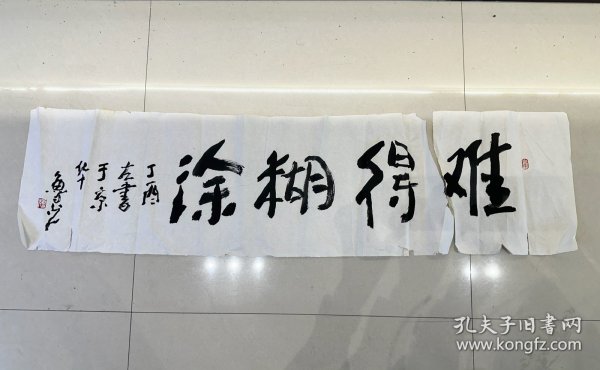 难得糊涂
丁酉
左書
于京
鲁光
孔夫子旧書网
www.kongfz.com